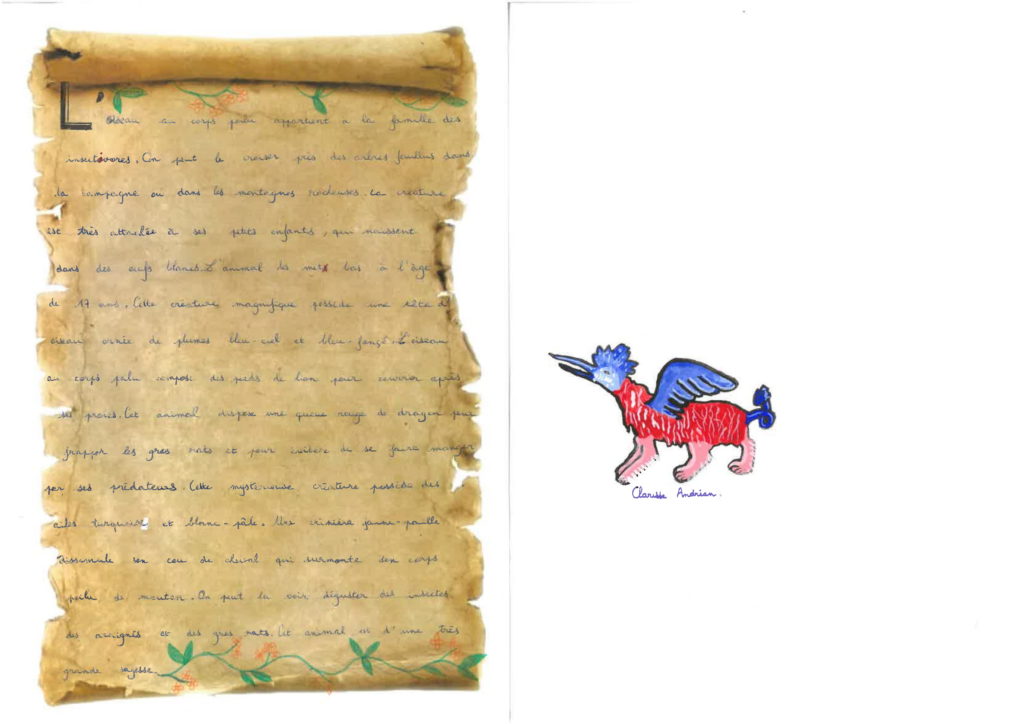 L'oiseau au corps poilu appartient a la famille des
insectivores. On peut le croiser près des arbres feuillus dans
la campagne ou dans les montagnes rocheuses. La créature
est très attachée à ses petits enfants, qui naissent
dans des œufs blancs. L'animal les mets bas à l'âge
de 17 ans. Cette créature magnifique possède une tête d'
oiseau ornée de plumes bleu-ciel et bleu-foncé. L'oiseau
au corps poilu compose des pieds de lion pour courir après
ses proies. Cet animal dispose une queue rouge de dragon pour
frapper les gros rats et pour de se faire manger
par ses prédateurs. Cette mystérieuse créature possède des
ailes turquoise et blanc-pâle. Une crinière jaune-paille
dissimule son cou de cheval qui surmonte son corps
poilu de mouton. On peut la voir déguster des insectes
des araignés et des gros rats. Cet animal est d'une très
grande sagesse.
Clarisse Andrian.